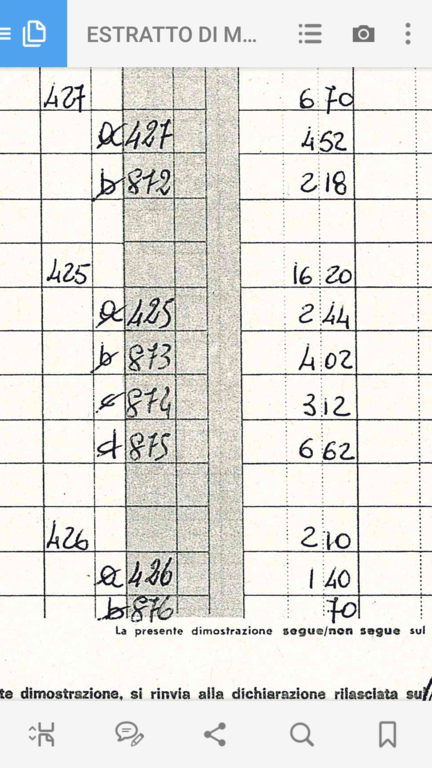 ESTRATTO DI M...
427 6 70
a 427 4 52
b 872 2 18
425 16 20
a 425 2 44
b 873 4 02
c 874 3 12
d 875 6 62
426 2 10
a 426 1 40
b 876 70
La presente dimostrazione segue/non segue sul
te dimostrazione, si rinvia alla dichiarazione rilasciata sul